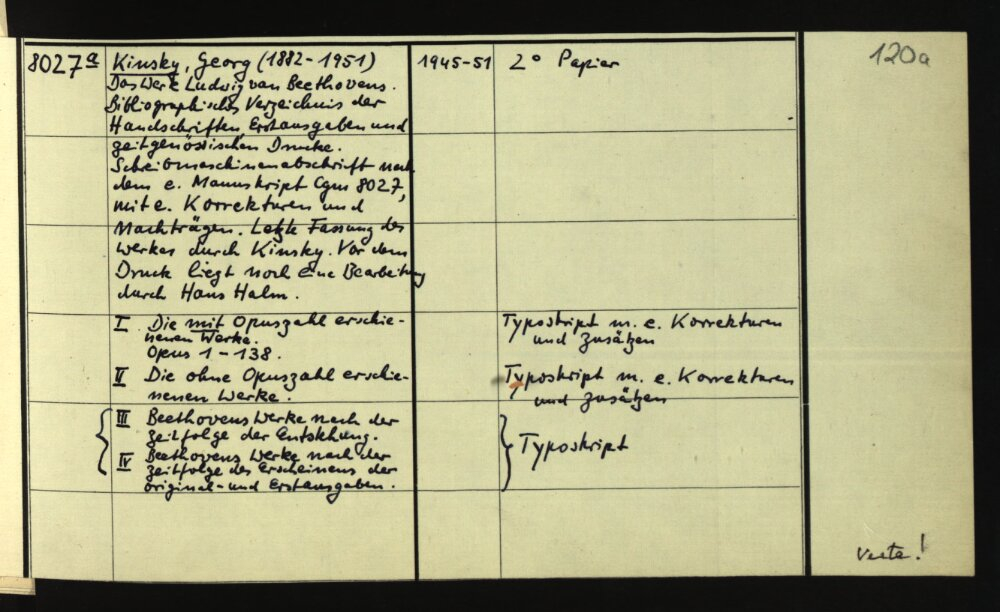 8027a Kinsky, Georg (1882-1951) 1945-51 2° Papier 120a
Das Werk Ludwig van Beethovens.
Bibliographisches Verzeichnis der
Handschriften, Erstausgaben und
zeitgenössischen Drucke.
Schreibmaschinenabschrift nach
dem e. Manuskript Cgm 8027,
mit e. Korrekturen und
Nachträgen. Letzte Fassung des
Werkes durch Kinsky. Vor dem
Druck liegt noch eine Bearbeitung
durch Hans Halm.
I Die mit Opuszahl erschie-
nenen Werke.
Opus 1-138.
Typoskript m. e. Korrekturen
und Zusätzen
II Die ohne Opuszahl erschie-
nenen Werke.
Typoskript m. e. Korrekturen
und Zusätzen
III Beethovens Werke nach der
Zeitfolge der Entstehung.
IV Beethovens Werke nach der
Zeitfolge des Erscheinens der
Original- und Erstausgaben.
Typoskript
Verte!